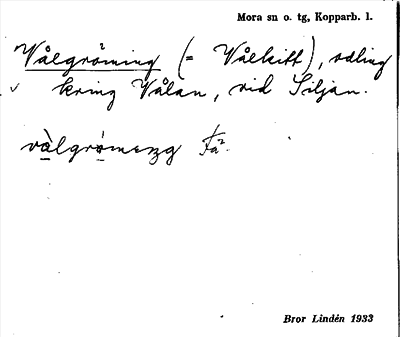 Mora sn o. tg, Kopparb. l.
Vålgröning (= Vålkitt), odling
kring Vålan, vid Siljan.
vàlgrömeŋg
Bror Lindén 1933